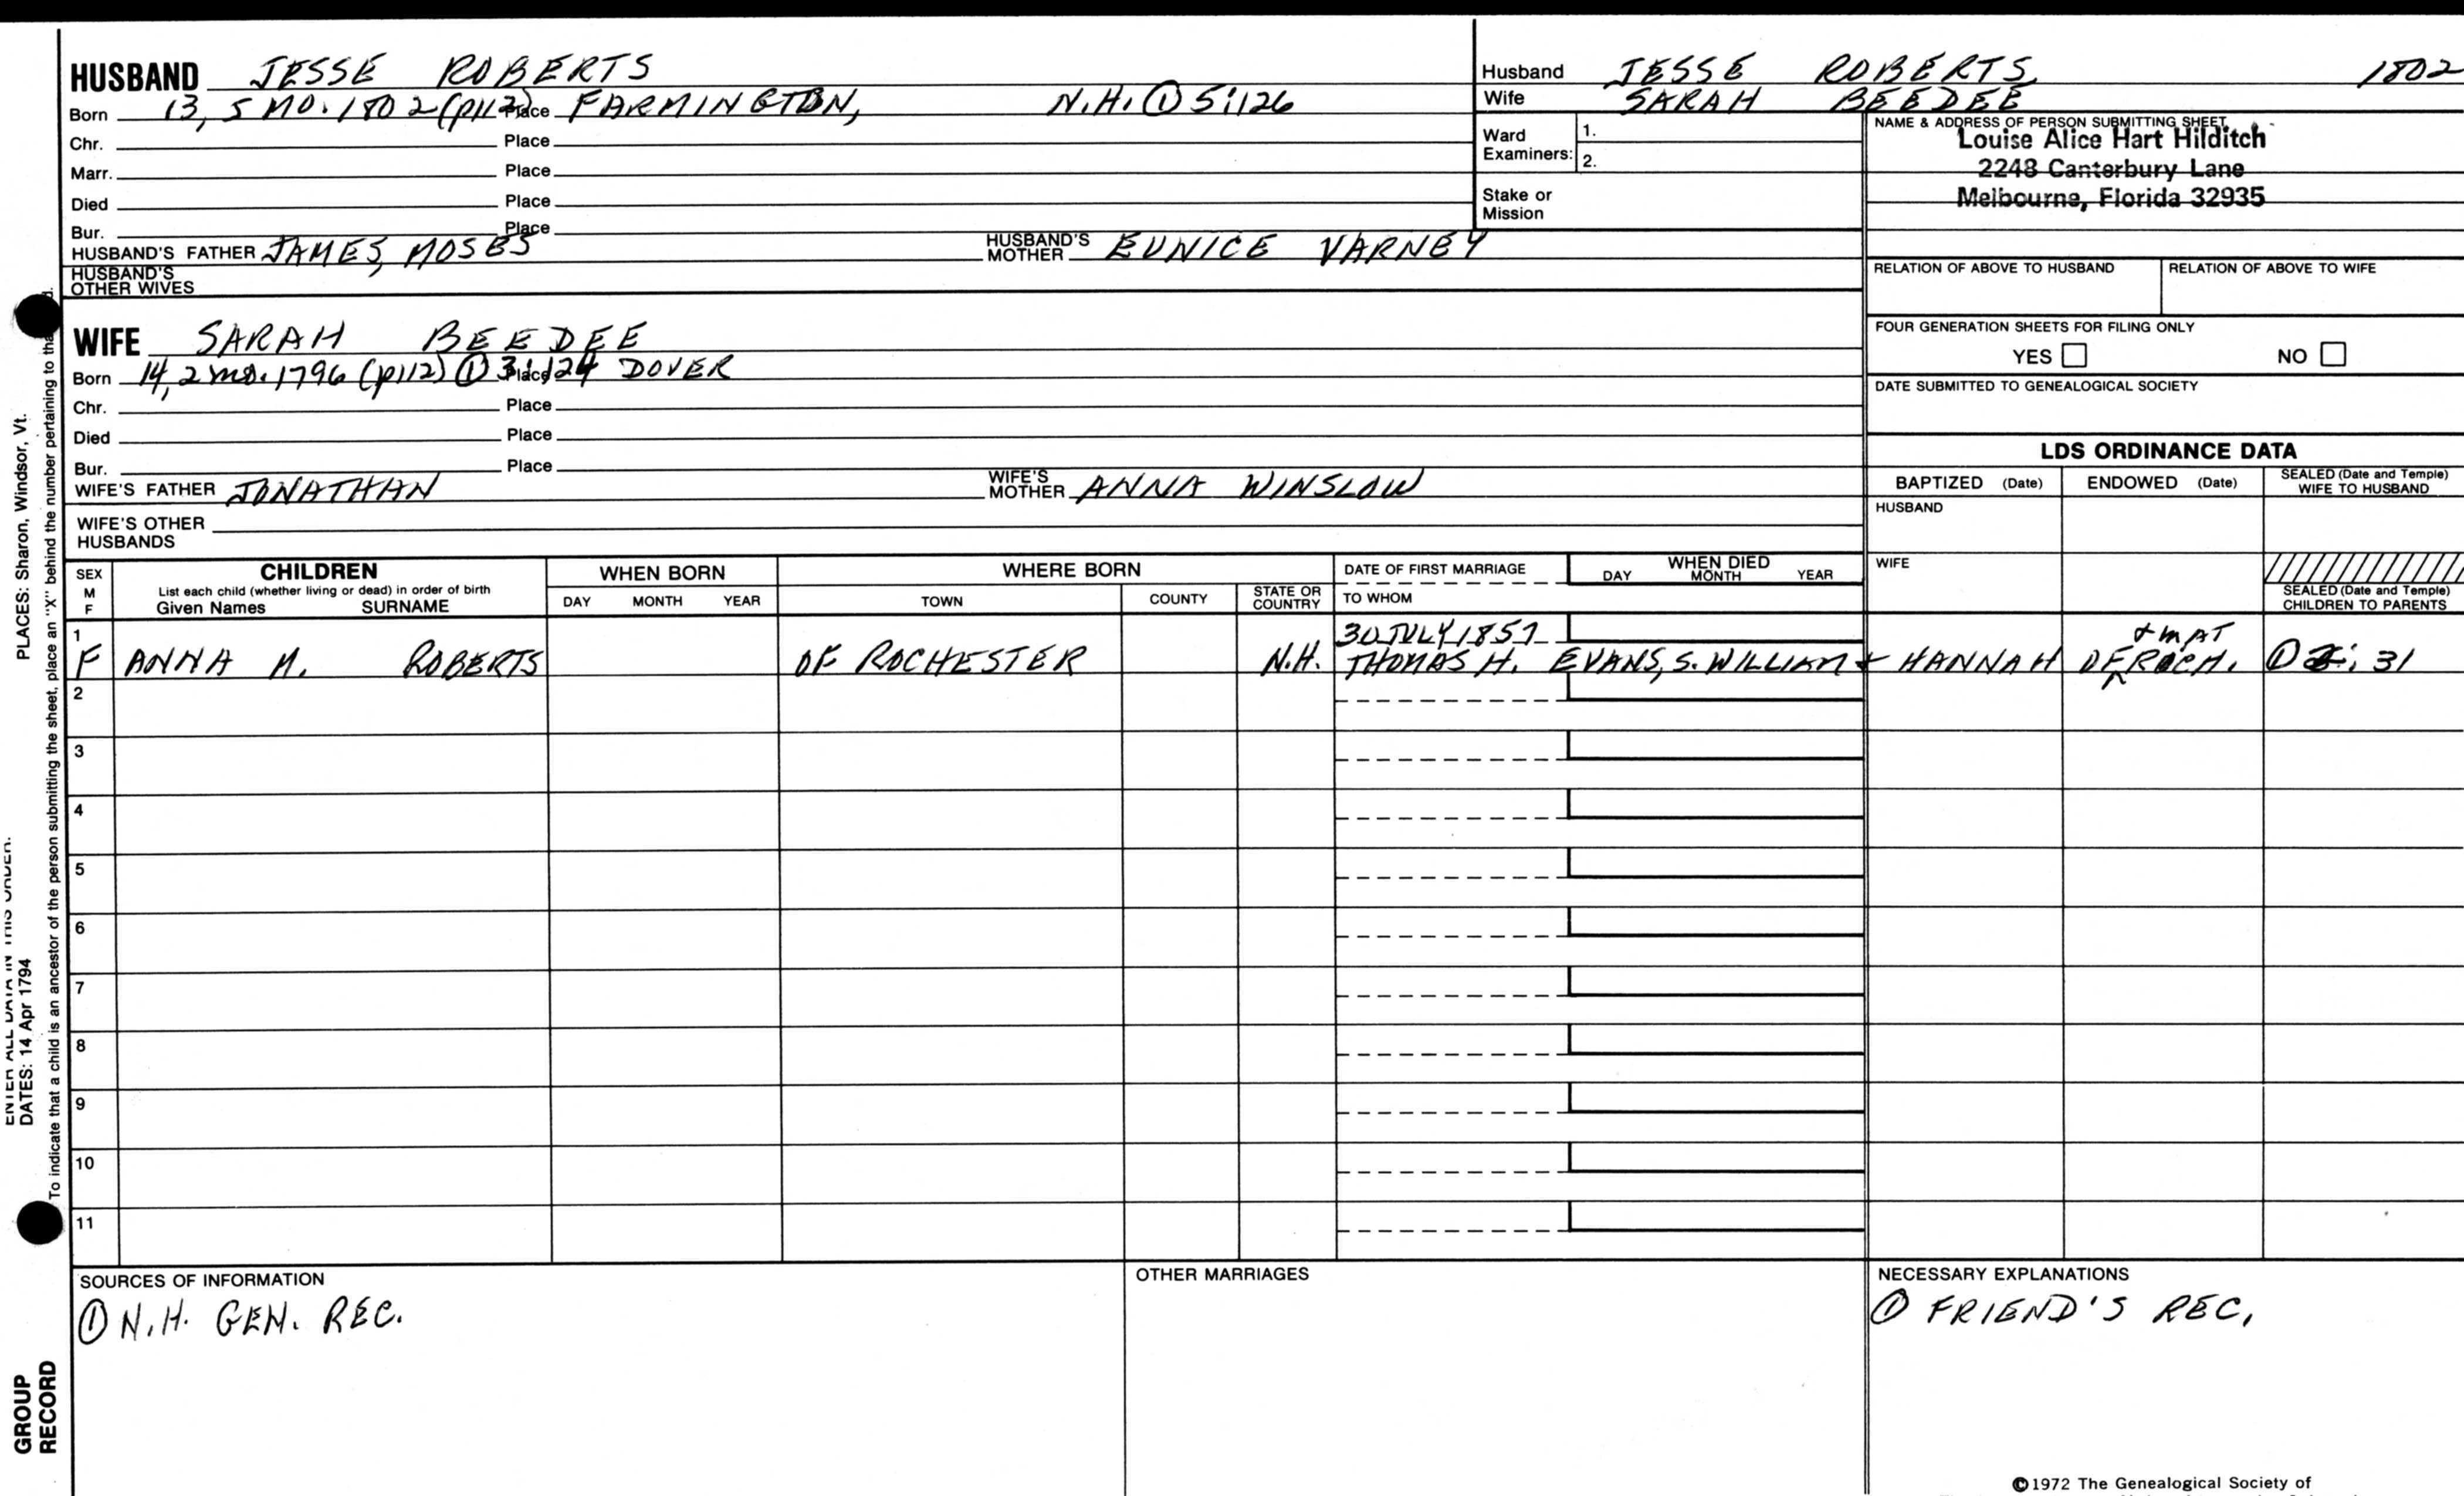 HUSBAND JESSE ROBERTS
Born 13, 5 MO. 1802 (p112) Place FARMINGTON, N.H. ① 5:126
Chr. Place
Marr. Place
Died Place
Bur. Place
HUSBAND'S FATHER JAMES, MOSES HUSBAND'S MOTHER EUNICE VARNEY
HUSBAND'S OTHER WIVES
WIFE SARAH BEEDEE
Born 14, 2 mo. 1796 (p112) ① 3:124 Place DOVER
Chr. Place
Died Place
Bur. Place
WIFE'S FATHER JONATHAN WIFE'S MOTHER ANNA WINSLOW
WIFE'S OTHER HUSBANDS
Husband JESSE ROBERTS, 1802
Wife SARAH BEEDEE
Ward Examiners: 1.
2.
Stake or Mission
NAME & ADDRESS OF PERSON SUBMITTING SHEET
Louise Alice Hart Hilditch
2248 Canterbury Lane
Melbourne, Florida 32935
RELATION OF ABOVE TO HUSBAND RELATION OF ABOVE TO WIFE
FOUR GENERATION SHEETS FOR FILING ONLY
YES NO
DATE SUBMITTED TO GENEALOGICAL SOCIETY
LDS ORDINANCE DATA
BAPTIZED (Date) ENDOWED (Date) SEALED (Date and Temple) WIFE TO HUSBAND
HUSBAND
WIFE
SEALED (Date and Temple) CHILDREN TO PARENTS
SEX M F
CHILDREN
List each child (whether living or dead) in order of birth
Given Names SURNAME
WHEN BORN
DAY MONTH YEAR
WHERE BORN
TOWN COUNTY STATE OR COUNTRY
DATE OF FIRST MARRIAGE
TO WHOM
WHEN DIED
DAY MONTH YEAR
1 30 JULY 1857 + MAT
F ANNA M. ROBERTS OF ROCHESTER N.H. THOMAS H. EVANS, S. WILLIAM + HANNAH OF ROCH. ① : 31
2
3
4
5
6
7
8
9
10
11
SOURCES OF INFORMATION
① N.H. GEN. REC.
OTHER MARRIAGES
NECESSARY EXPLANATIONS
① FRIEND'S REC.
©1972 The Genealogical Society of
PLACES: Sharon, Windsor, Vt.
ENTER ALL DATA IN THIS ORDER:
DATES: 14 Apr 1794
To indicate that a child is an ancestor of the person submitting the sheet, place an "X" behind the number pertaining to that
GROUP RECORD